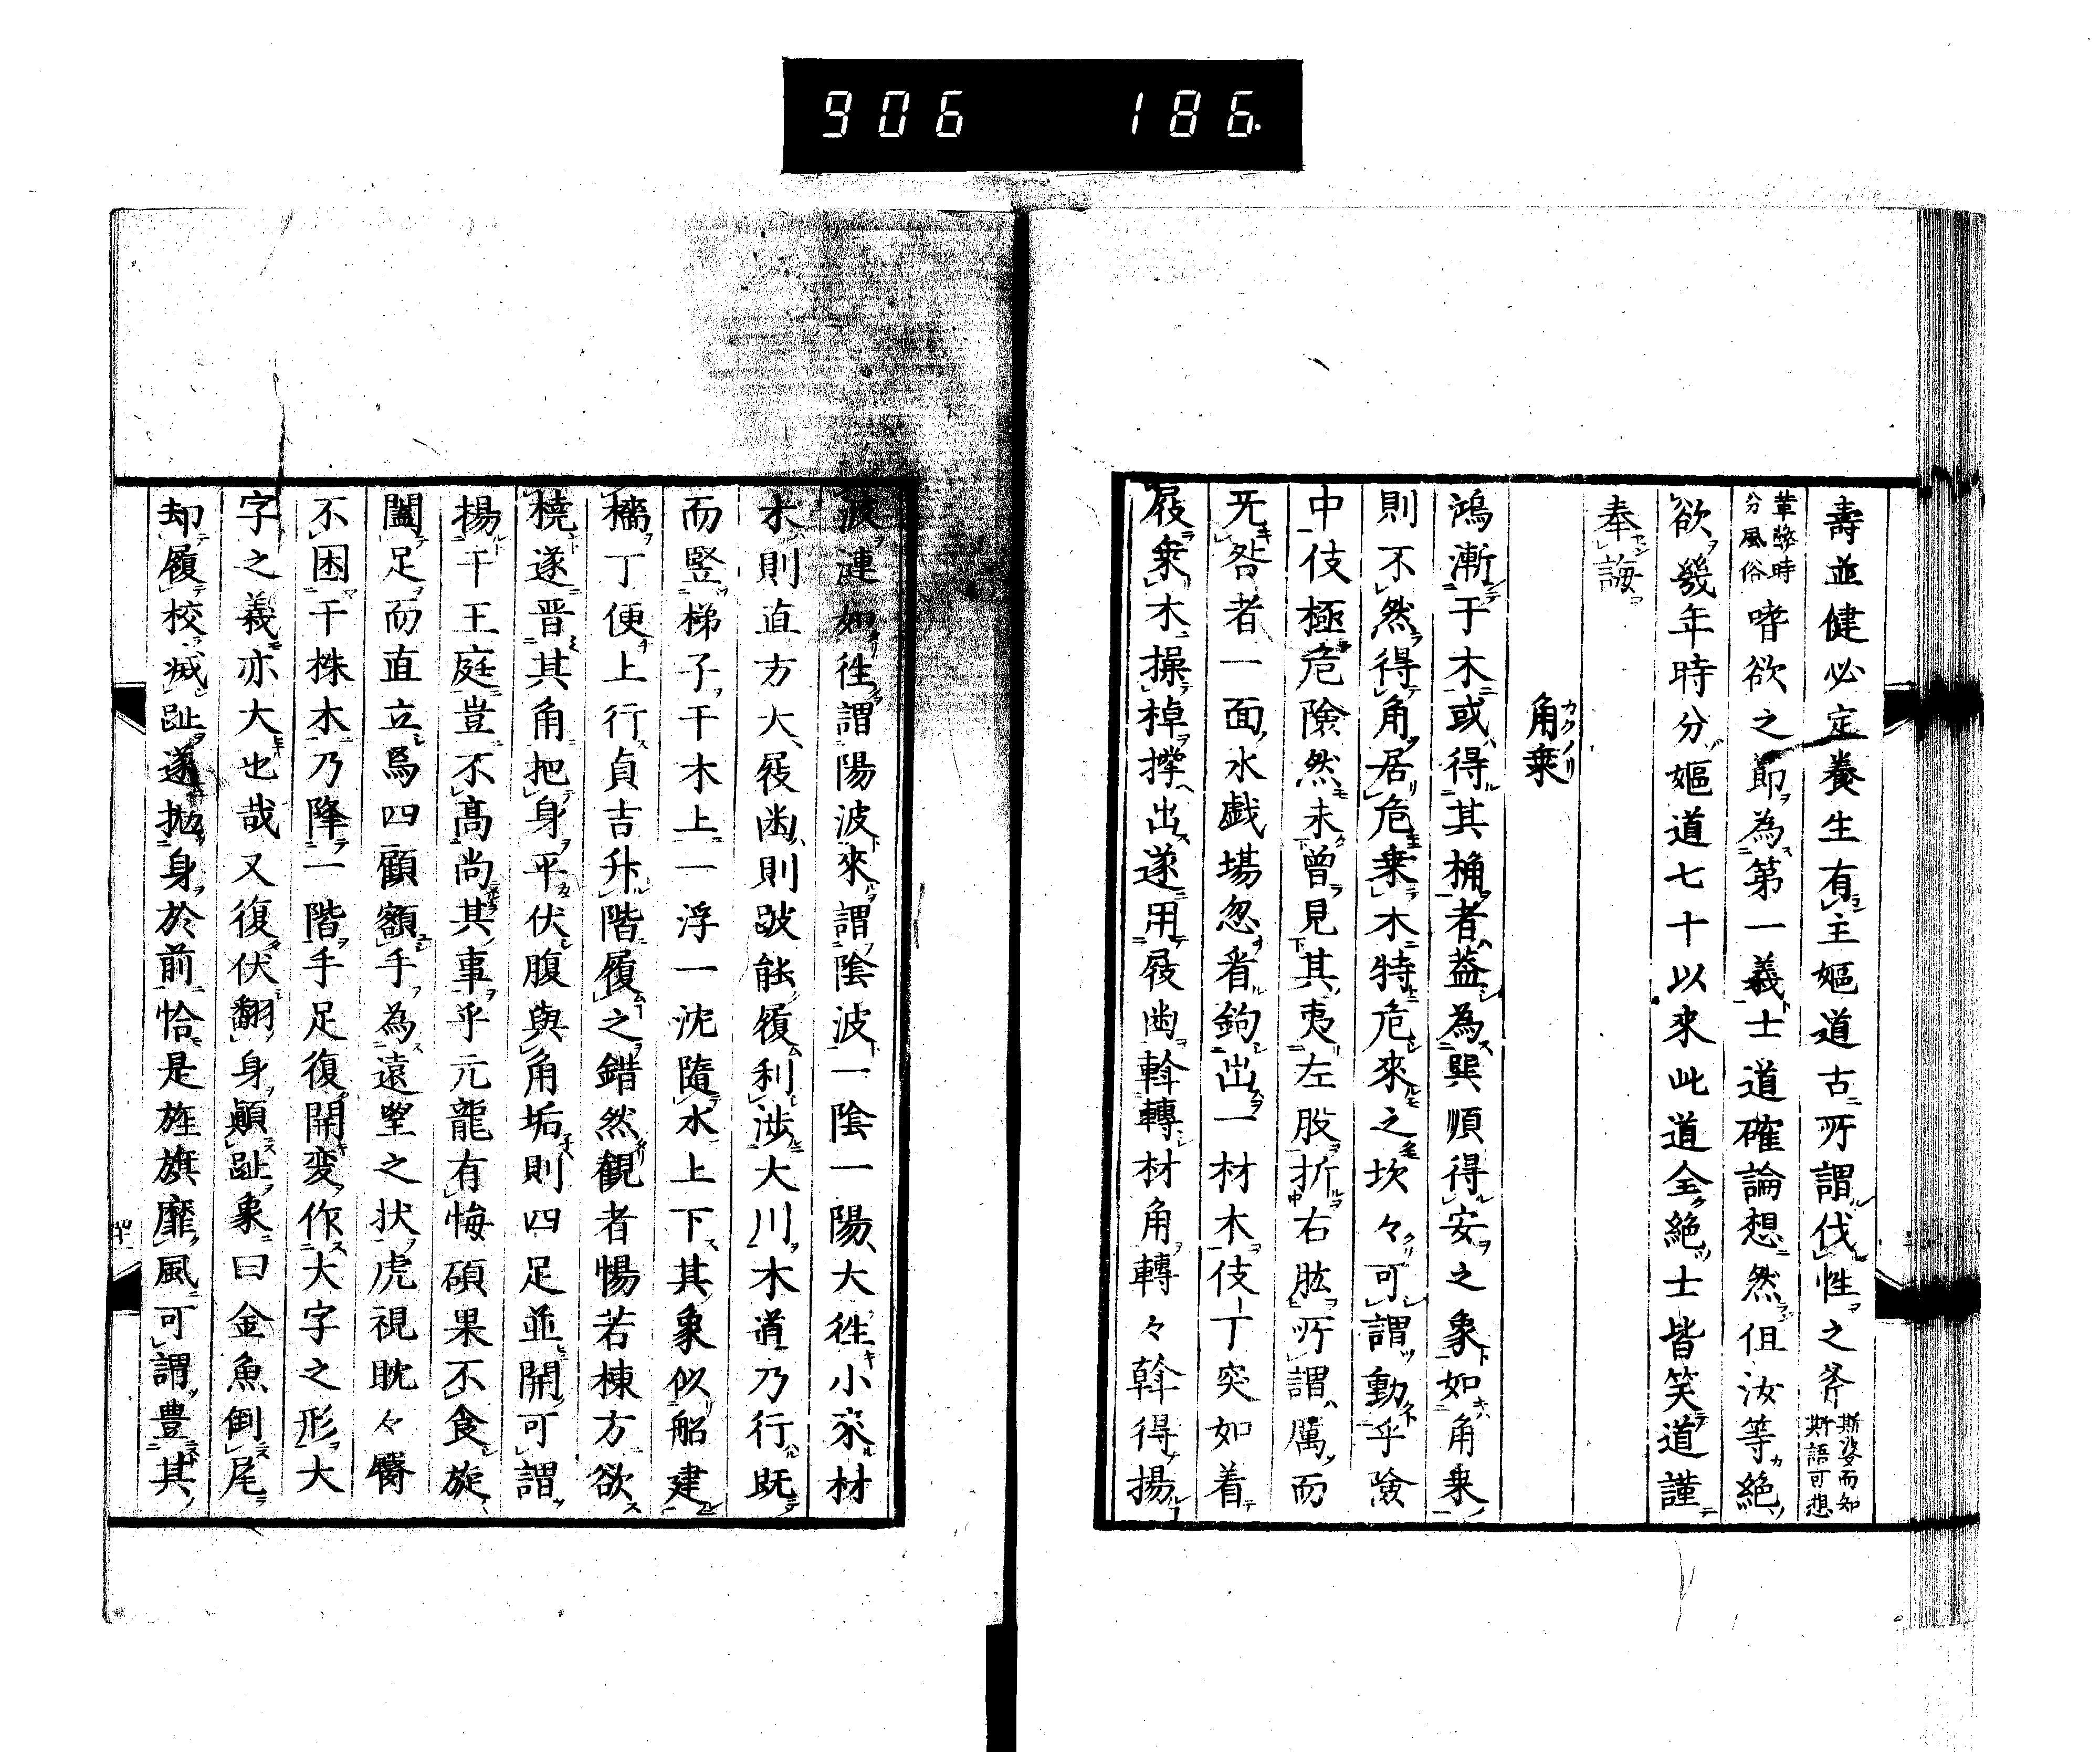 906 186
壽並健必定養生有主嫗道古所謂伐性之斧斯婆而知斯語可想
輦轂時分風俗嗜欲之節為第一義士道確論想然但汝等絕
欲幾年時分嫗道七十以來此道全絕士皆笑道謹
奉誨
角乗
カクノリ
鴻漸于木或得其桷者葢為巽順得安之象如角乗
則不然得角居危乗木特危來之坎々可謂動乎險
中伎極危險然未曾見其夷左股折右肱所謂厲而
旡咎者一面水戯場忽看鉤出一材木伎丁突如着
屐乗木操棹撑出遂用屐歯斡轉材角轉々斡得揚
波漣如徃謂陽波來謂陰波一陰一陽大徃小來材
木則直方大屐歯則跛能履利渉大川木道乃行既
而竪梯子于木上一浮一沈隨水上下其象似船建
檣丁便上行貞吉升階履之錯然観者惕若棟方欲
橈遂晋其角把身平伏腹與角垢則四足並開可謂
揚于王庭豈不高尚其事乎元龍有悔碩果不食旋
闔足而直立焉四顧額手為遠望之状虎視眈々臀
不困于株木乃降一階手足復開変作大字之形大
字之義亦大也哉又復伏翻身顚趾象曰金魚倒尾
却履校滅趾遂抛身於前恰是旌旗靡風可謂豊其